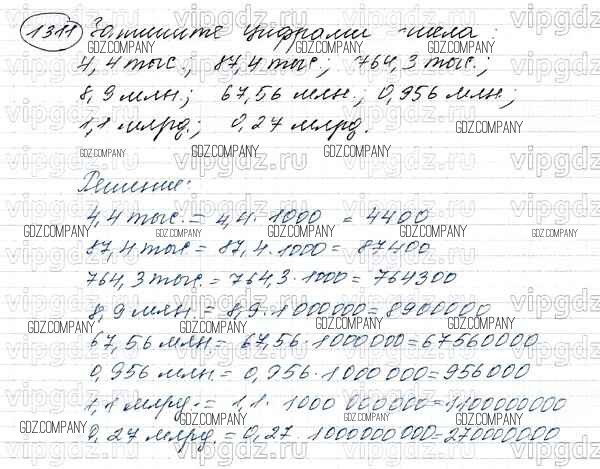 1311 Запишите цифрами числа:
4,4 тыс.; 87,4 тыс.; 764,3 тыс.;
8,9 млн.; 67,56 млн.; 0,956 млн.;
1,1 млрд.; 0,27 млрд.
Решение:
4,4 тыс. = 4,4 · 1000 = 4400
87,4 тыс = 87,4 · 1000 = 87400
764,3 тыс. = 764,3 · 1000 = 764300
8,9 млн. = 8,9 · 1000000 = 8900000
67,56 млн. = 67,56 · 1000000 = 67560000
0,956 млн. = 0,956 · 1000000 = 956000
1,1 млрд. = 1,1 · 1000 000000 = 1100000000
0,27 млрд. = 0,27 · 1000000000 = 270000000
vipgdz.ru
GDZ.COMPANY